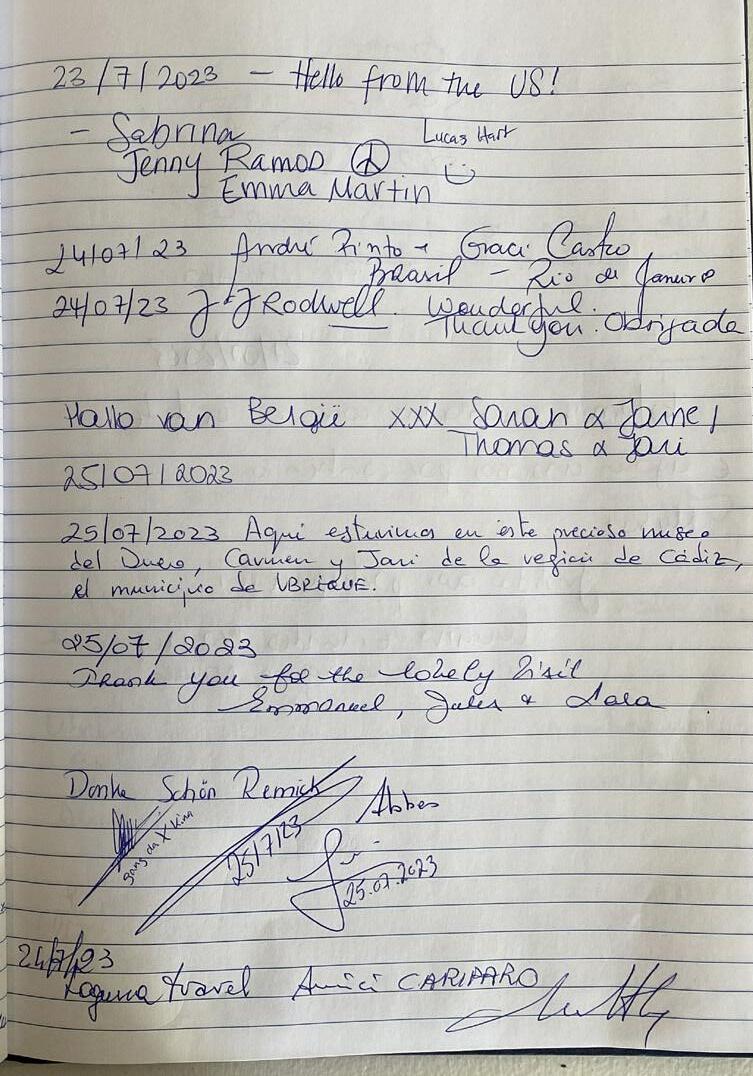 23/7/2023 - Hello from the US!
- Sabrina Lucas Hart
Jenny Ramos
Emma Martin
24/07/23 André Pinto + Graci Castro
Brasil - Rio de Janeiro
24/07/23 J J Rodwell. Wonderful.
Thank you. Obrigada
Hallo van België xxx Sarah & Jarne,
Thomas & Jari
25/07/2023
25/07/2023 Aquí estuvimos en este precioso museo
del Duero, Carmen y Javi de la región de Cádiz,
el municipio de UBRIQUE.
25/07/2023
Thank you for the lovely visit
Emmanuel, Jules & Lara
Danke Schön Remich
Abbes
25/7/23
25.07.2023
24/7/23
Laguna travel Amici CARIPARO